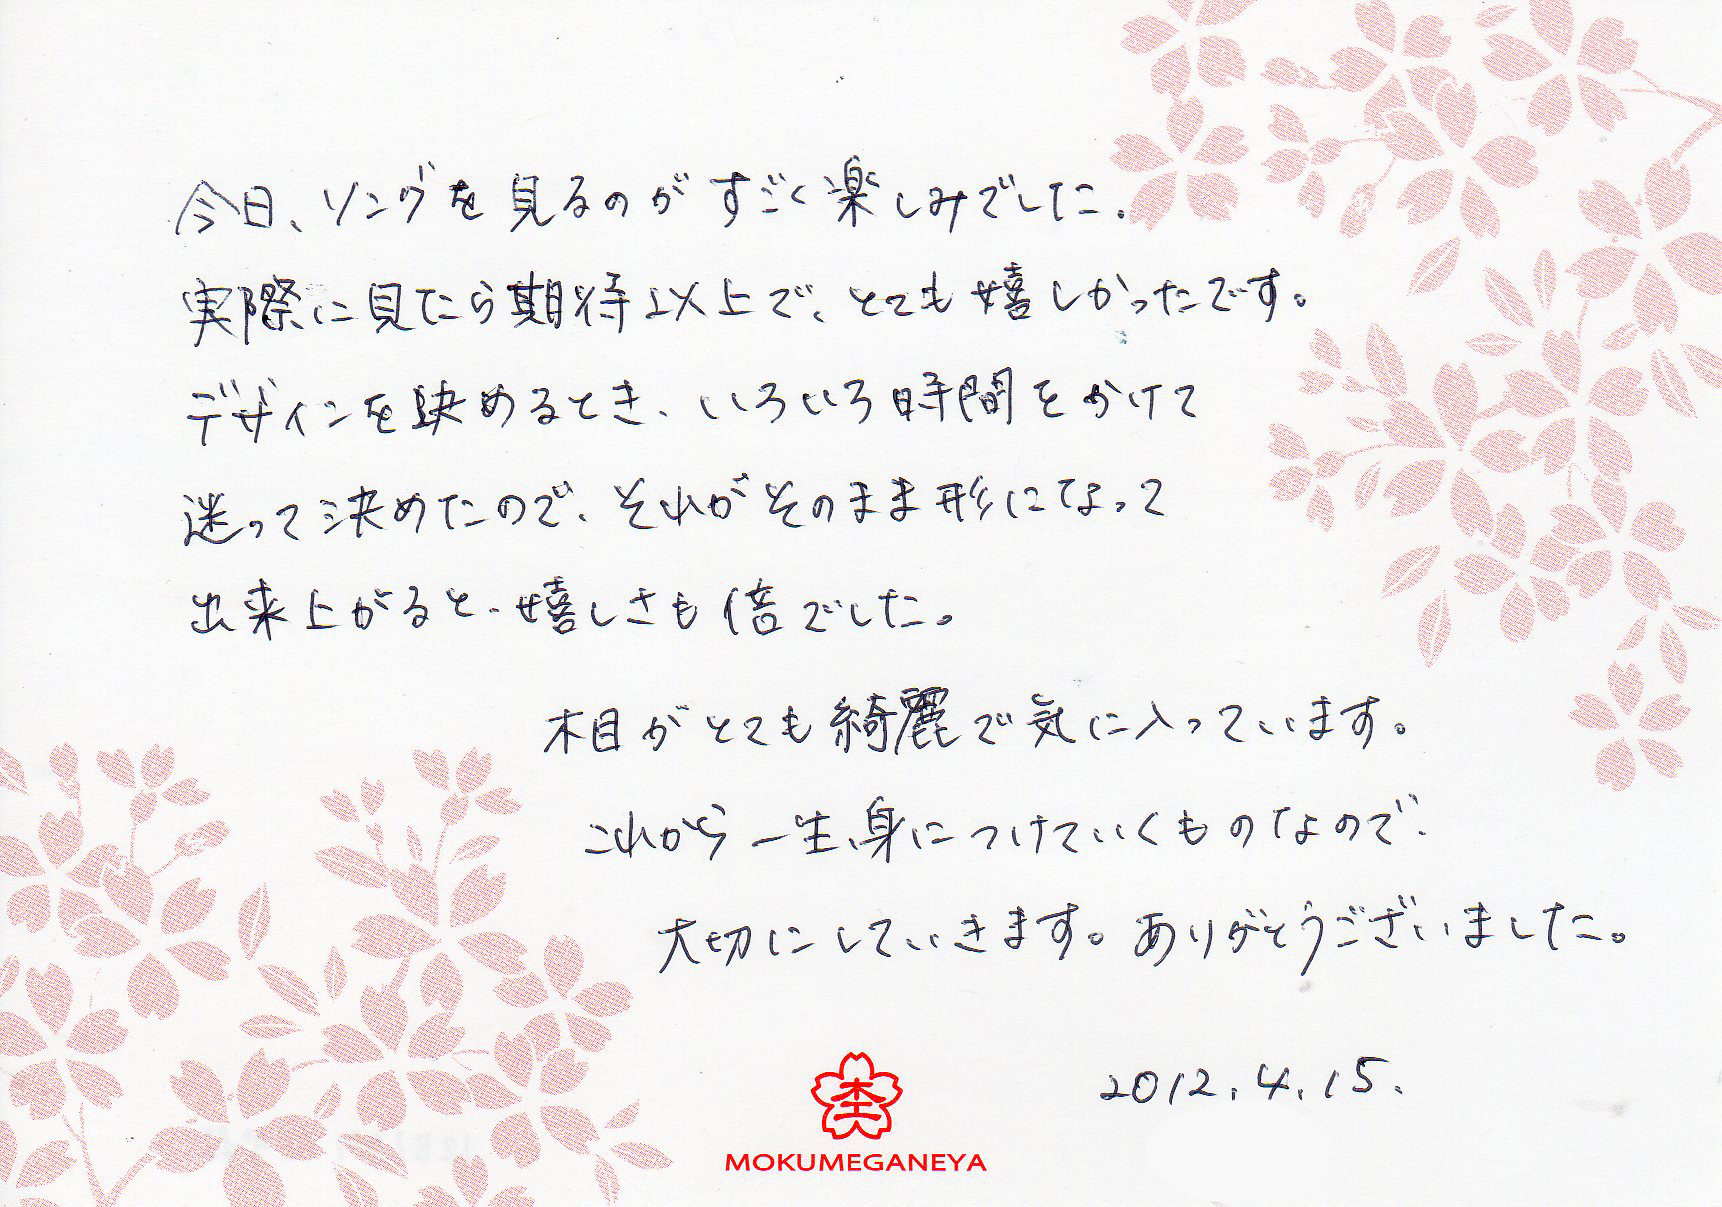 今日、リングを見るのがすごく楽しみでした。
実際に見たら期待以上で、とても嬉しかったです。
デザインを決めるとき、いろいろ時間をかけて
迷って決めたので、それがそのまま形になって
出来上がると、嬉しさも倍でした。
木目がとても綺麗で気に入っています。
これから一生、身につけていくものなので、
大切にしていきます。ありがとうございました。
2012.4.15.
MOKUMEGANEYA